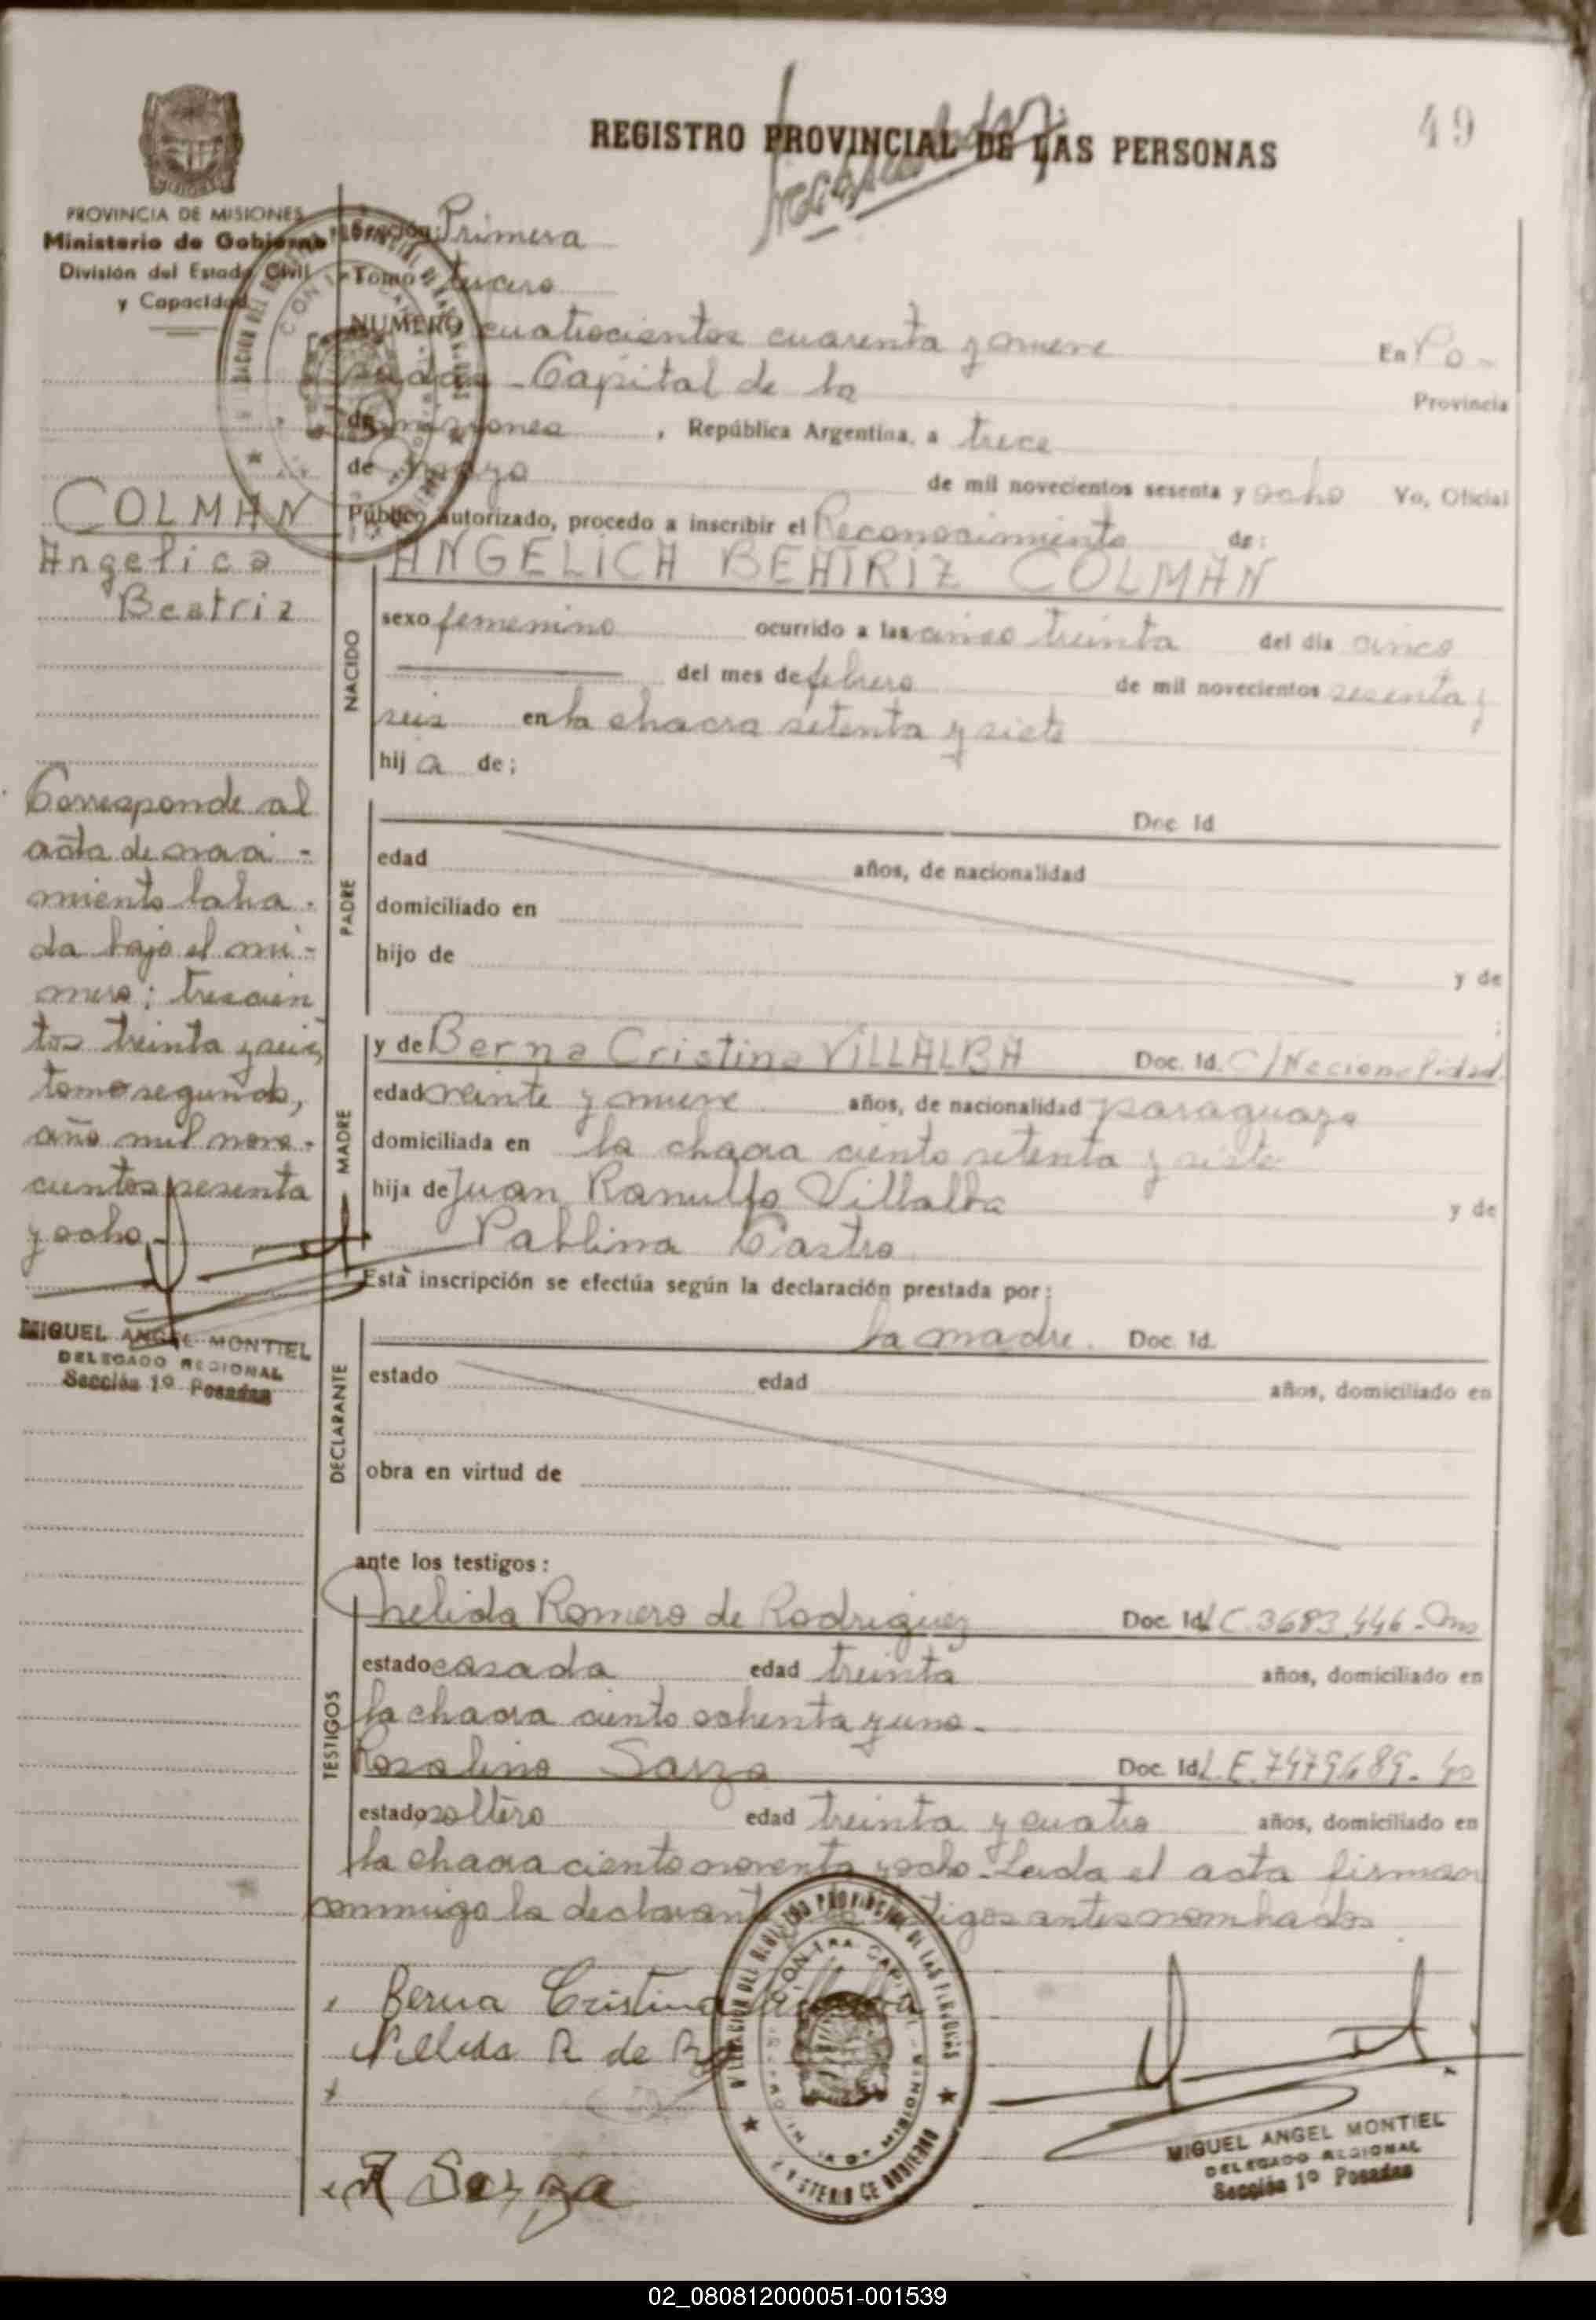 49
REGISTRO PROVINCIAL DE LAS PERSONAS
PROVINCIA DE MISIONES
Ministerio de Gobierno
División del Estado Civil
y Capacidad
Sección: Primera
Tomo tercero
NUMERO cuatrocientos cuarenta y nueve En Po-
sadas - Capital de la Provincia
de misiones, República Argentina, a trece
de mayo de mil novecientos sesenta y ocho Yo, Oficial
Público autorizado, procedo a inscribir el Reconocimiento de:
COLMAN
Angelica
Beatriz
NACIDO
ANGELICA BEATRIZ COLMAN
sexo femenino ocurrido a las cinco treinta del día cinco
del mes de febrero de mil novecientos sesenta y
seis en la chacra setenta y siete
hija de;
Corresponde al
acta de naci-
miento labra-
da bajo el nú-
mero: trescien
tos treinta y seis,
tomo segundo,
año mil nove-
cientos sesenta
y ocho.-
MIGUEL ANGEL MONTIEL
DELEGADO REGIONAL
Sección 1º Posadas
PADRE
Doc. Id
edad años, de nacionalidad
domiciliado en
hijo de y de
;
MADRE
y de Berna Cristina VILLALBA Doc. Id. C/Nacionalidad.
edad veinte y nueve años, de nacionalidad paraguaya
domiciliada en la chacra ciento setenta y siete
hija de Juan Ranulfo Villalba y de
Pablina Castro
Esta inscripción se efectúa según la declaración prestada por:
DECLARANTE
la madre. Doc. Id.
estado edad años, domiciliado en
obra en virtud de
ante los testigos:
TESTIGOS
Nelida Romero de Rodriguez Doc. Id L.C. 3683.446-
estado casada edad treinta años, domiciliado en
la chacra ciento ochenta y uno-
Rosalino Sarza Doc. Id L.E. 7479689-
estado soltero edad treinta y cuatro años, domiciliado en
la chacra ciento noventa y ocho-Leida el acta firman
conmigo la declarante testigos antes nombrados
Berna Cristina Villalba
Nellida R de R
R Sarza
MIGUEL ANGEL MONTIEL
DELEGADO REGIONAL
Sección 1º Posadas
02_080812000051-001539